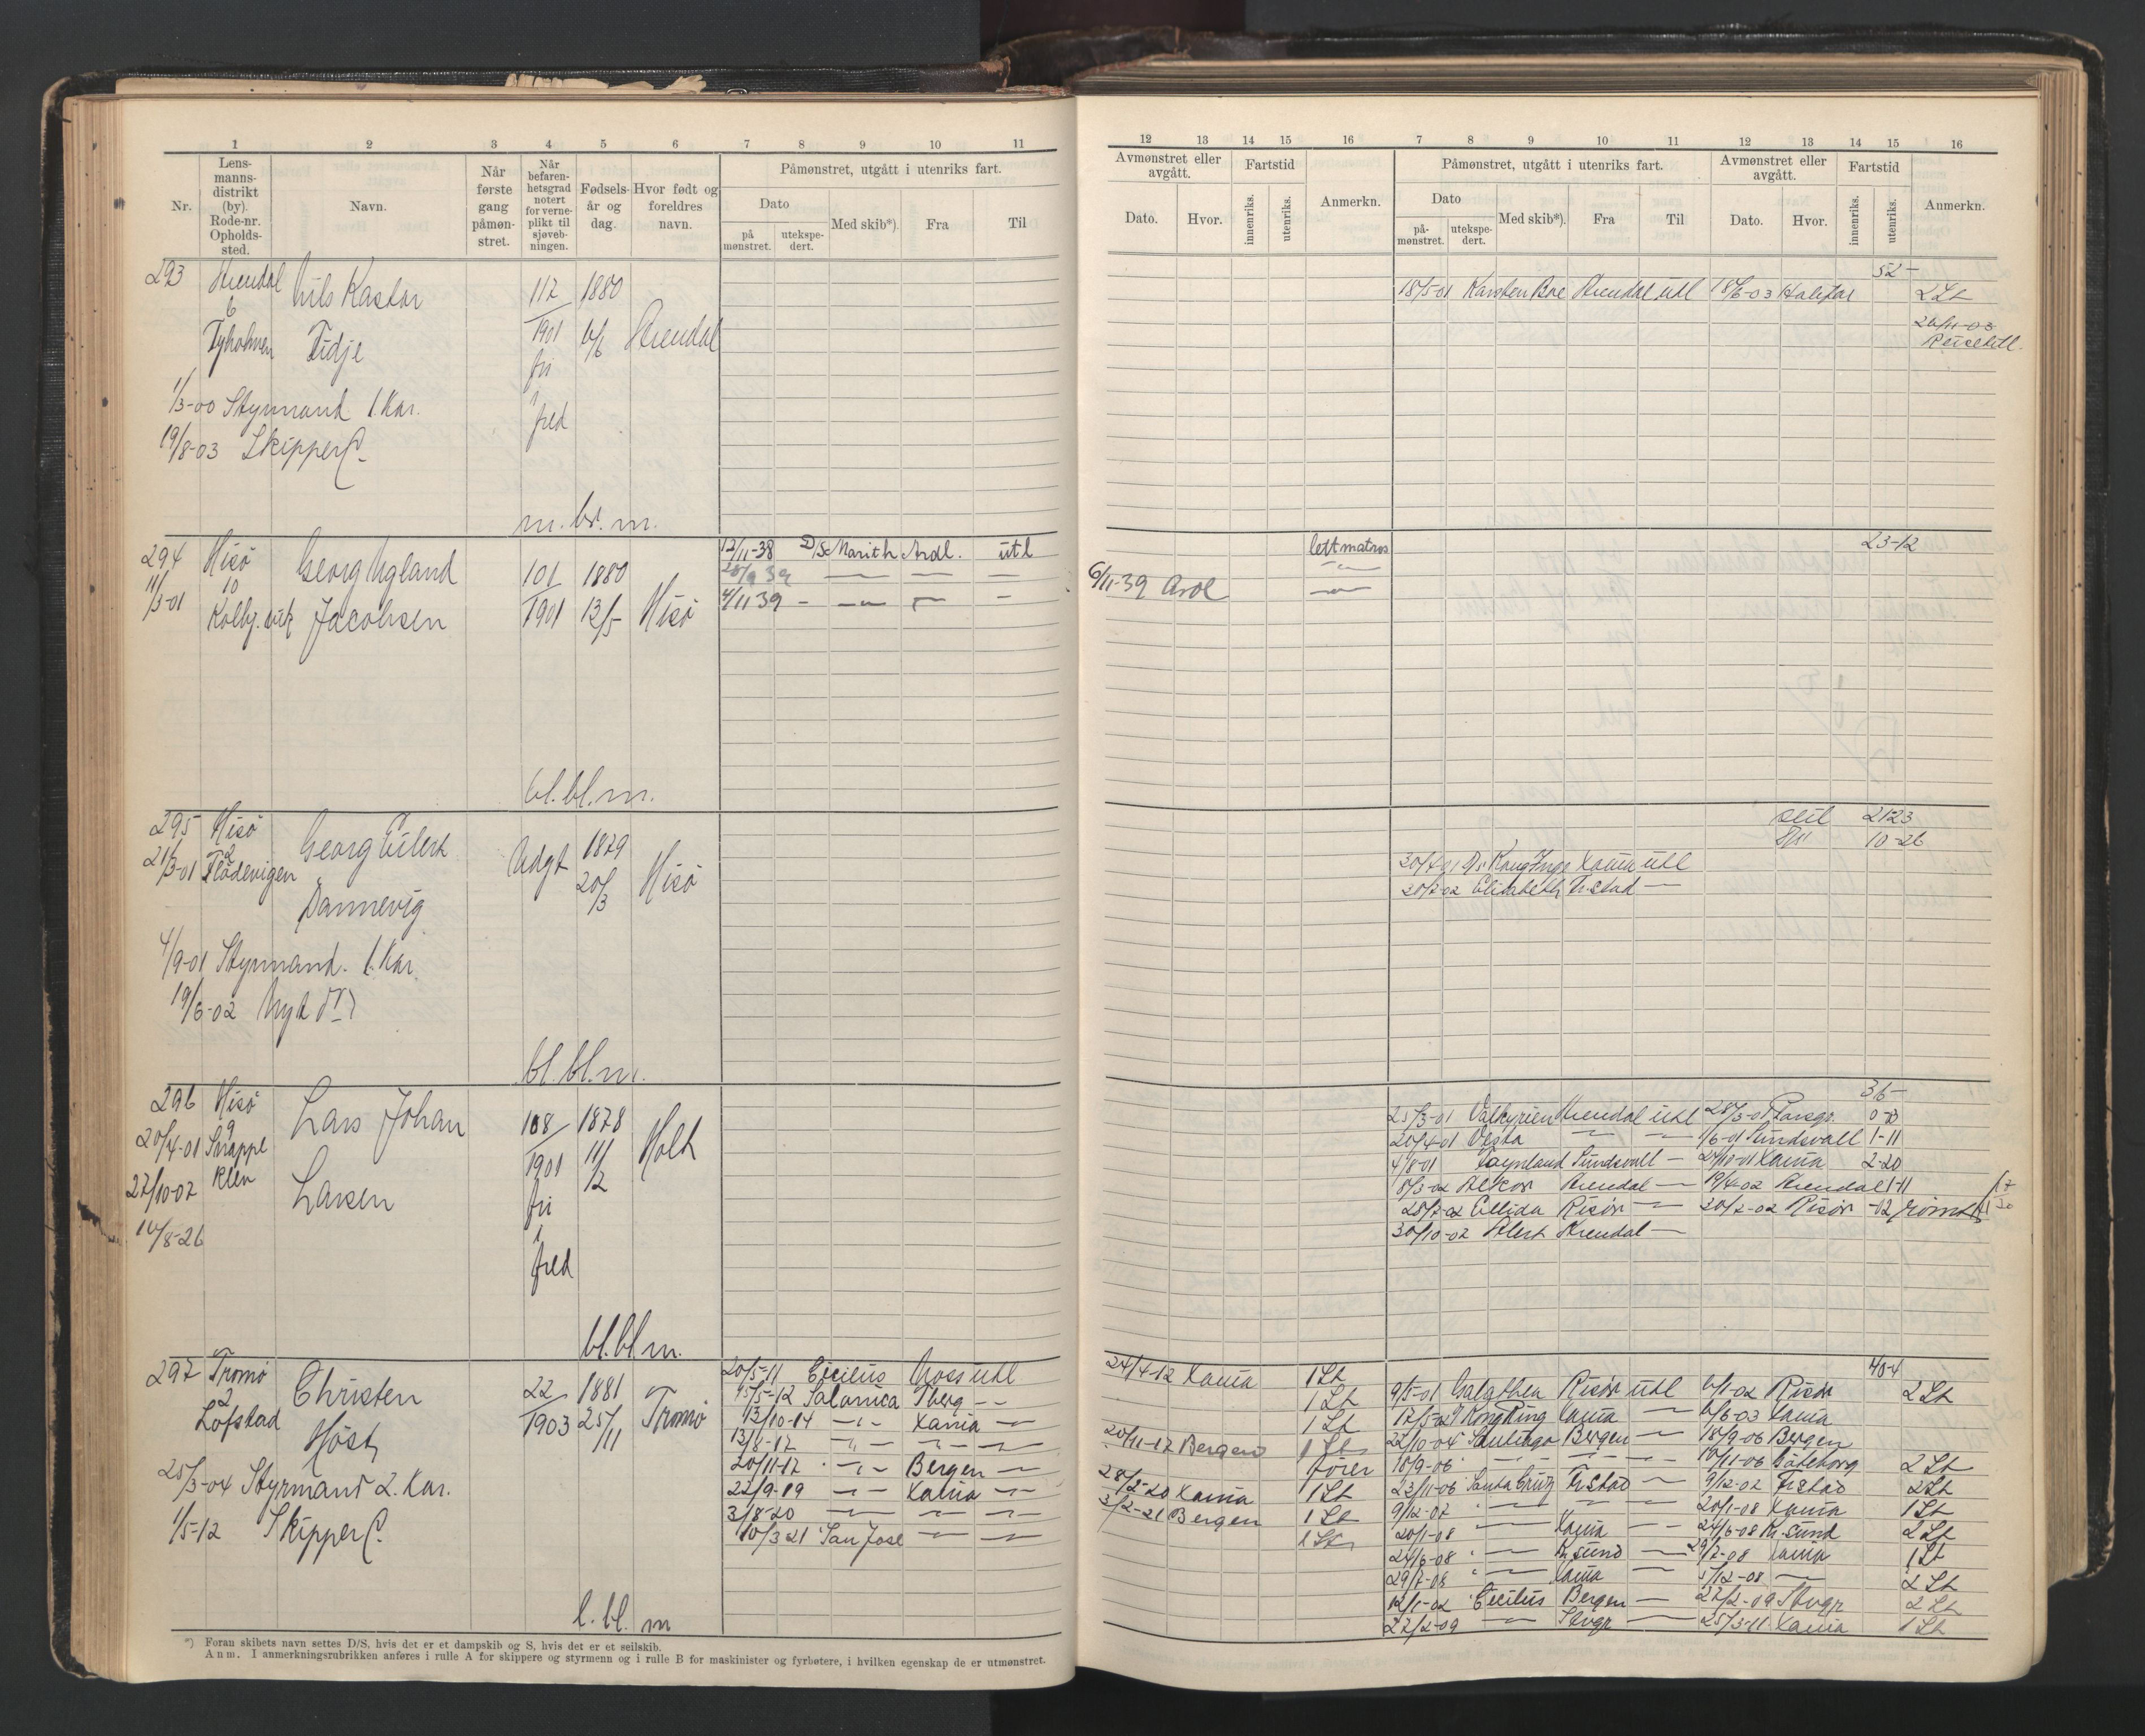 1 2 3 4 5 6 7 8 9 10 11
Nr.
Lens-
manns-
distrikt
(by).
Rode-nr.
Opholds-
sted.
Navn.
Når
første
gang
påmøn-
stret.
Når
befaren-
hetsgrad
notert
for verne-
plikt til
sjøveb-
ningen.
Fødsels-
år og
dag.
Hvor født og
foreldres
navn.
Påmønstret, utgått i utenriks fart.
Dato
på
mønstret.
utekspe-
dert.
Med skib*).
Fra
Til
293 Arendal Nils Kastor 112 1880
6
Tyholmen Tidje 1901 6/6 Arendal
fri
1/3-00 Styrmand 1. Kar. i
fred
19/8-03 Skipper C.
m. br. m.
294 Hisö Georg Ugland 101 1880 12/11-38 D/S Marith Ardl. utl
11/3-01 10 28/9 39 — — —
Kolbj.vik Jacobsen 1901 13/5 Hisö 4/11 39 — — — —
bl. bl. m.
295 Hisö Georg Eilert Udgt 1879
21/3-01 2 Flödevigen 20/3 Hisö
Dannevig
4/9-01 Styrmand. 1. Kar.
19/6-02 Nyt
bl. bl. m.
296 Hisö Lars Johan 108 1878
9
20/4-01 Snappe 1901 11/2 Holt
27/10-02 klev Larsen fri
i
10/8-26 fred
bl. bl. m.
297 Tromö Christen 22 1881 20/5-11 Cicilius Moss utl
2 15/5-12 Salonica Tberg — —
Löfstad Höst 1903 25/11 Tromö 13/10-14 —"— Xania —
13/8-17 —"— —"— —
20/11-17 —"— Bergen —
25/3-04 Styrmand 2. Kar. 22/9-19 —"— Xania —
3/8-20 — — —
1/5-12 Skipper C. 10/3 21 San Jose — —
l. bl. m
*) Foran skibets navn settes D/S, hvis det er et dampskib og S, hvis det er et seilskib.
Anm. I anmerkningsrubrikken anføres i rulle A for skippere og styrmenn og i rulle B for maskinister og fyrbøtere, i hvilken egenskap de er utmønstret.
12 13 14 15 16 7 8 9 10 11 12 13 14 15 16
Avmønstret eller
avgått.
Dato.
Hvor.
Fartstid
innenriks.
utenriks.
Anmerkn.
Påmønstret, utgått i utenriks fart.
Dato
på-
mønstret.
utekspe-
dert.
Med skib*).
Fra
Til
Avmønstret eller
avgått.
Dato.
Hvor.
Fartstid
innenriks.
utenriks.
Anmerkn.
52 —
18/5-01 Karsten Boe Arendal utl 18/6-03 Halifax 2 St
26/11-03
lettmatros 23-12
—"—
6/11-39 Ardl —"—
seil 21-23
10-26
30/4-01 D/s Kong Inge Xania utl
20/2-02 Elisabeth Fr.stad —
36 —
25/3-01 Valkyrien Arendal utl 28/3-01
20/4-01 Vesta — — 1/6-01 Sundsvall 1-11
4/8-01 Sundsvall — 24/10-01 Xania 2-20
8/3-02 Alkor Arendal — 19/4-02 Arendal 1-11
28/7-02 Ellida Risör — 30/7-02 Risör -02 römt
30/10-02 Alert Arendal —
40-4
24/4-12 Xania 1 St
1 St 9/5-01 Galathea Risör utl 6/1-02 Risör 2 St
1 St 17/5-02 Kong Ring Xania — 6/6-03 Xania
20/11-17 Bergen 1 St 22/10-04 Santiago Bergen — 18/9-06 Bergen
förer 18/9-06 —"— — — 19/11-06 Göteborg 2 St
28/2-20 Xania 1 St 23/11-06 Santa Cruz Fr.stad — 9/12-07 Fr.stad 2 St
3/2-21 Bergen 1 St 9/12-07 — — — 20/1-08 Xania 1 St
1 St 20/1-08 — Xania — 24/6-08 Kr.sund 2 St
24/6-08 — Kr.sund — 29/7-08 Xania 1 St
29/7-08 — Xania 5/12-08 — 2 St
Cicilius Bergen — 27/2-09 Stvgr 2 St
27/2-09 — Stvgr — 25/3-11 Xania 1 St